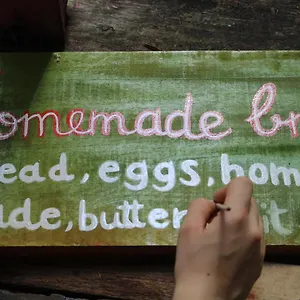 omemade br
ead, eggs, hom
ade, butter